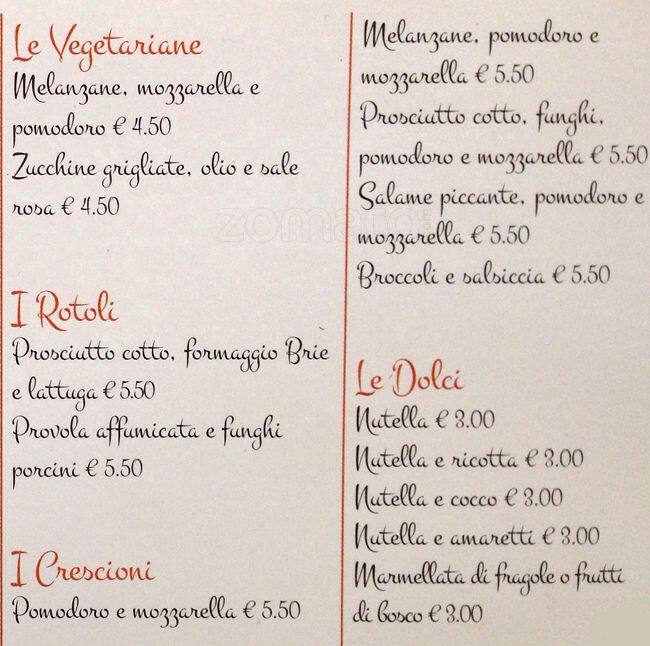 Le Vegetariane
Melanzane, mozzarella e
pomodoro € 4.50
Zucchine grigliate, olio e sale
rosa € 4.50
I Rotoli
Prosciutto cotto, formaggio Brie
e lattuga € 5.50
Provola affumicata e funghi
porcini € 5.50
I Crescioni
Pomodoro e mozzarella € 5.50
Melanzane, pomodoro e
mozzarella € 5.50
Prosciutto cotto, funghi,
pomodoro e mozzarella € 5.50
Salame piccante, pomodoro e
mozzarella € 5.50
Broccoli e salsiccia € 5.50
Le Dolci
Nutella € 3.00
Nutella e ricotta € 3.00
Nutella e cocco € 3.00
Nutella e amaretti € 3.00
Marmellata di fragole o frutti
di bosco € 3.00
zomato